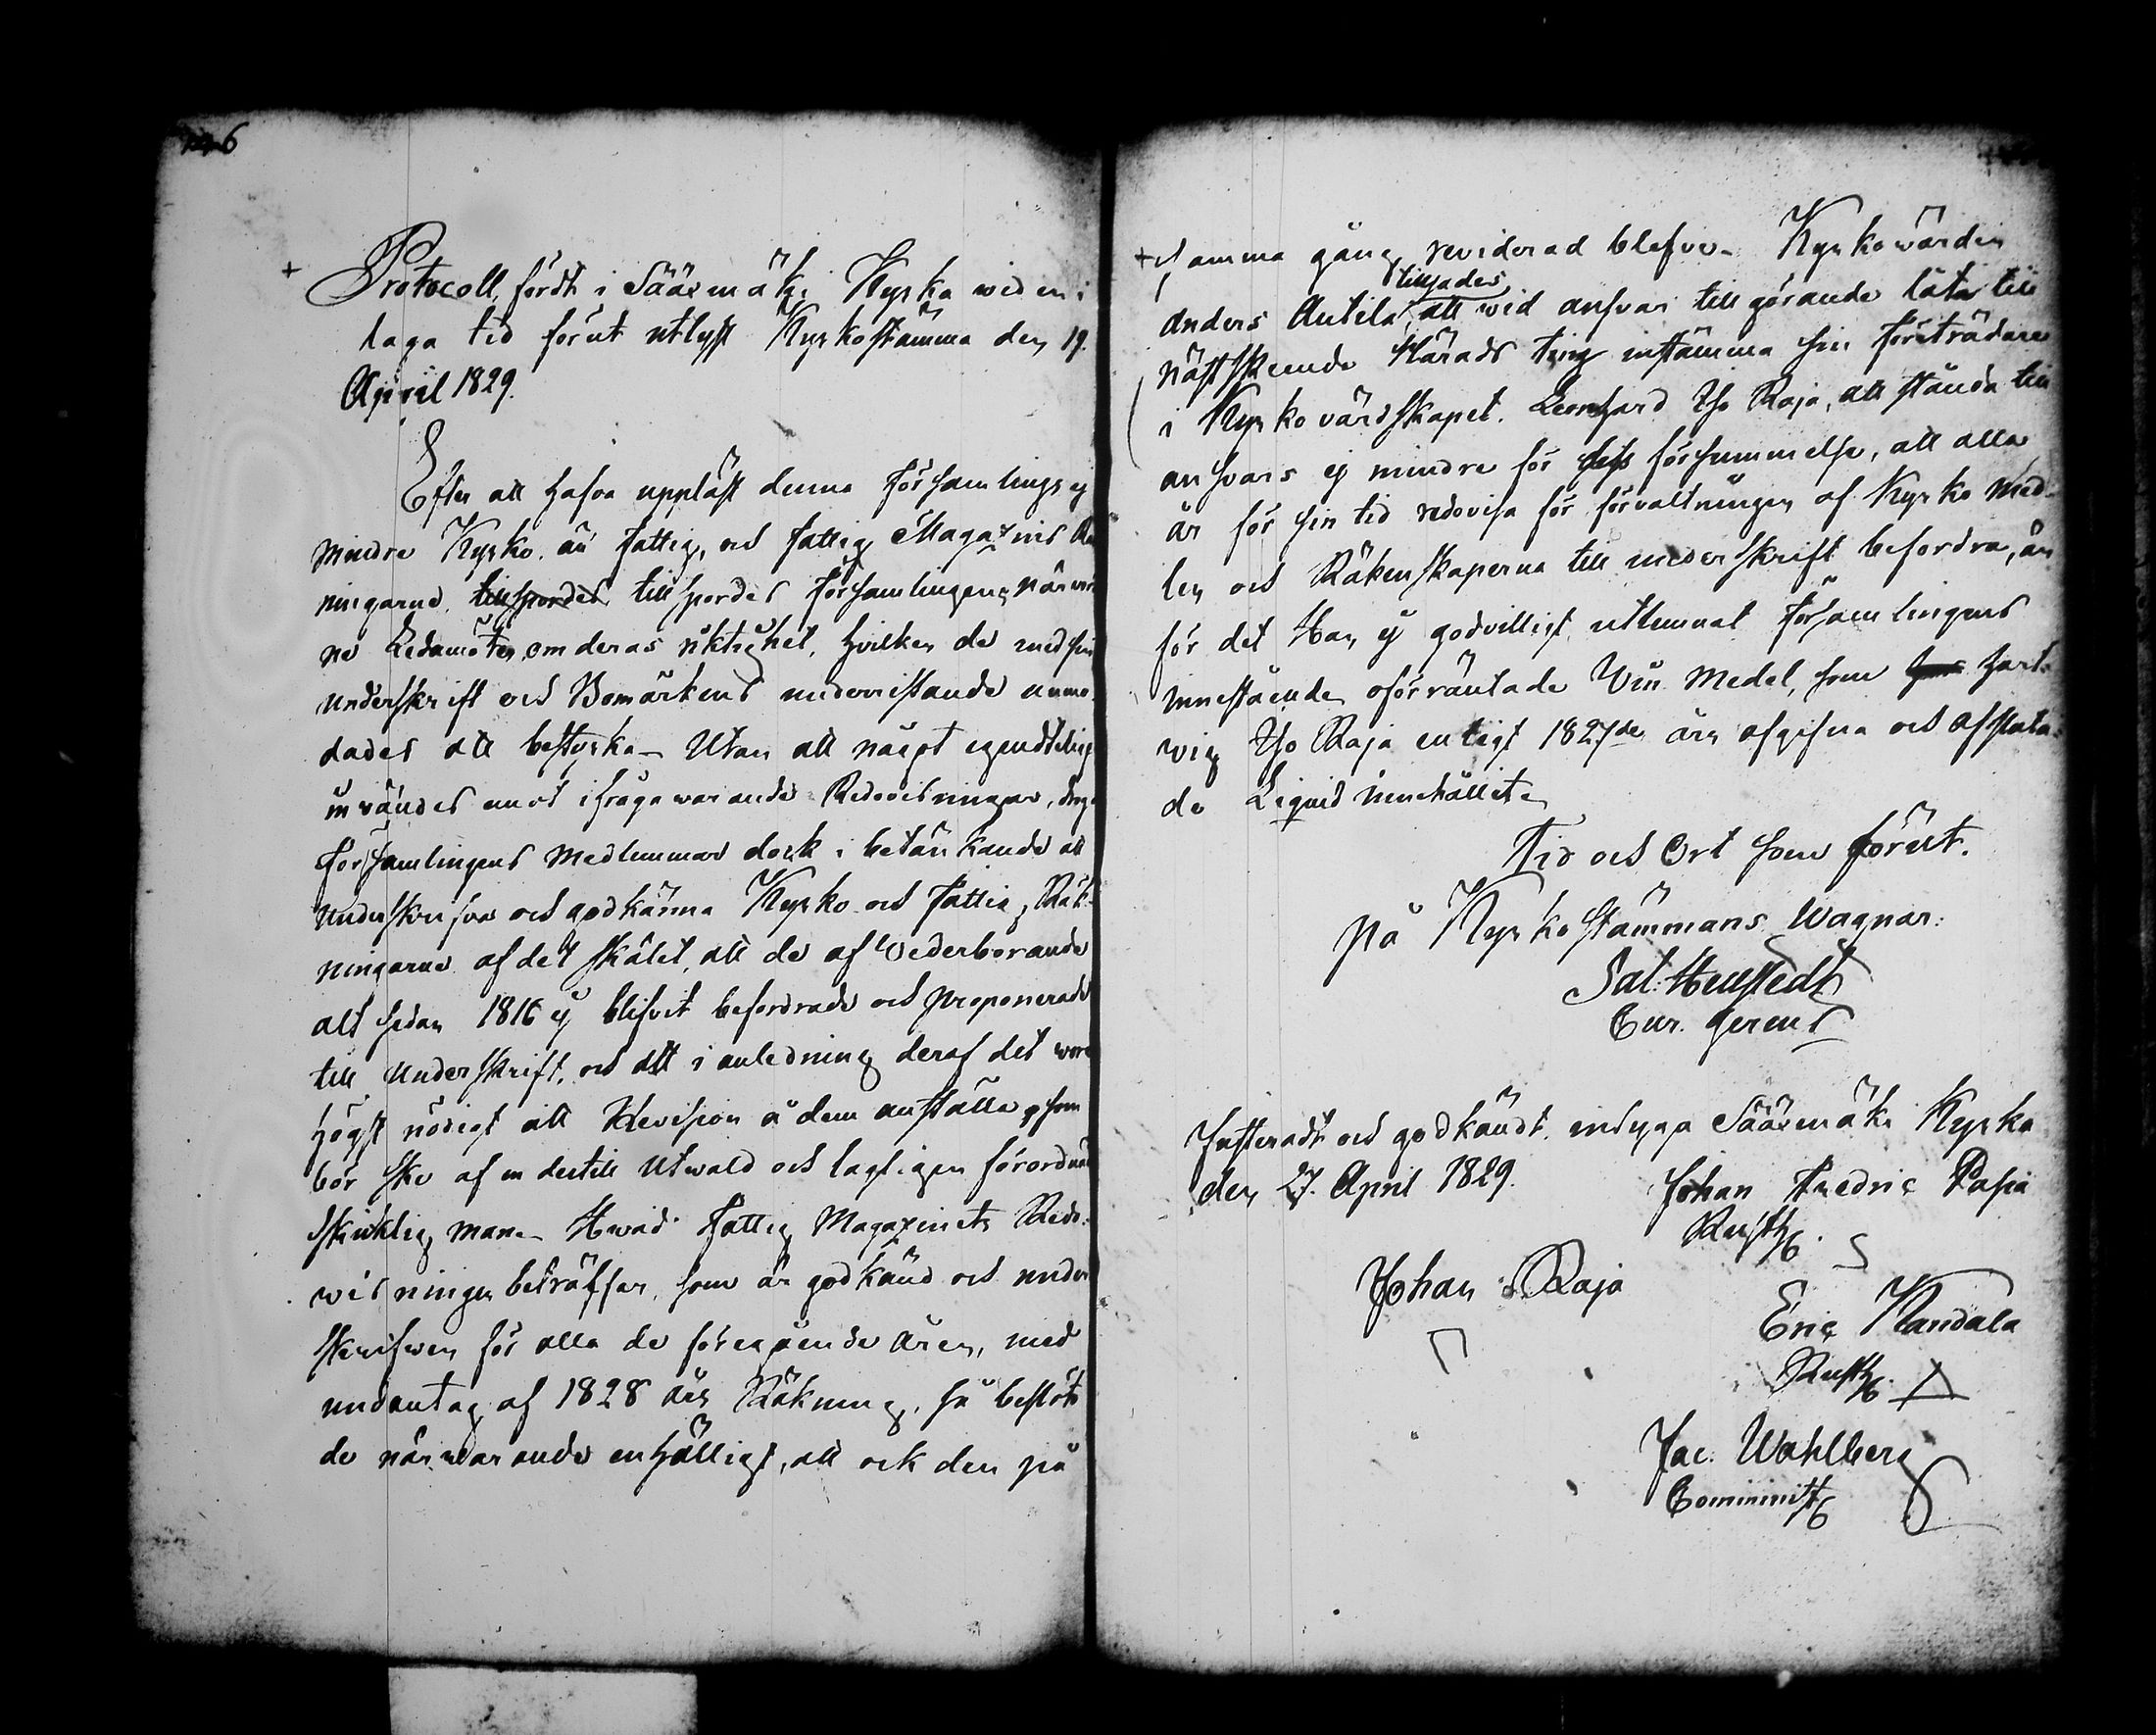 146
Protocoll, fördt i Säärmäki Kyrka wid en i
laga tid förut utlyst Kyrkostämma den 19.
April 1829.
Efter att hafva uppläst denna Församlings ej
mindre Kyrko- än fattig, och fattig Magazins Räk
ningarne, tillspordes tillspordes Församlingens närvaran
ne Ledamöter, om deras riktighet, hvilken de med sin
underskrift och Bomärkens nedanstående anmo
dades att bestyrka_ Utan att något egendtelig
invändes emot ifrågawarande Redovisningar, drog
Församlingens Medlemmar dock i betänkande att
underskrifva och godkänna Kyrko- och Fattig Räk
ningarne af det skälet, att de af Vederbörande
alt sedan 1816 ej blifvit befordrade och proponerade
till Underskrift, och att i anledning deraf det wore
högst nödigt att Revision å dem anställa, som
bör ske af en dertill Utwald och lagligen förordnad
skicklig man_ Hwad Fattig Magazinets Redo-
wisningen beträffar, som är godkänd och under
skrifwen för alla de föregående åren, med
undantag af 1828 års Räkning, så beslöto
de närwarande enhälligt, att ock den på
samma gång reviderad blefve_ Kyrkowärden
tillsades
Anders Antila, att vid ansvar till görande låta till
nästskeende Härads ting instämma sin företrädare
i Kyrkovärdskapet. Leonhard Yso Raja, att stånda till
ansvars ej mindre för dess försummelse, att alla
år för sin tid redovisa för förvaltningen af Kyrko Med-
len och Räkenskaperna till underskrift befordra, än
för det Han ej godvilligt utlemnat Församlingens
innestående oförräntade Vin Medel, som Hart-
wig Yso Raja enligt 1827de års afgifna och afsluta-
de Liquid innehållit_
Tid och Ort som förut.
på Kyrkostämmans Wagnar:
Sal: Hellstedt
Cur. gerens
Justeradt och godkändt, intyga Säärmäki Kyrka
den 27. April 1829.
Johan Fredric Pasia
Rusth.
Johan Raja
Eric Kandala
Rusth.
Jac. Wahlberg
Comminist